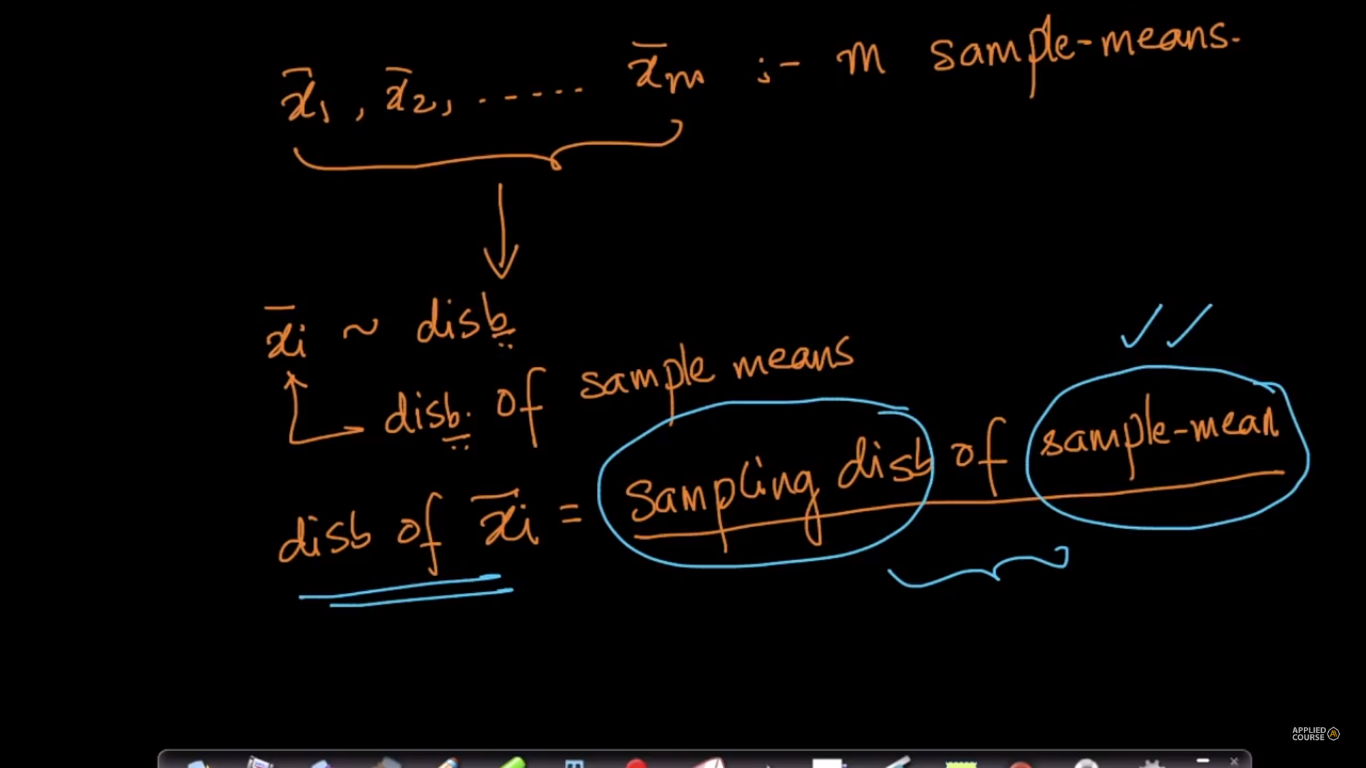 x̄₁, x̄₂, ...... x̄ₘ :- m sample-means.
x̄ᵢ ~ disb
disb. of sample means
disb of x̄ᵢ = Sampling disb of sample-mean
APPLIED
COURSE